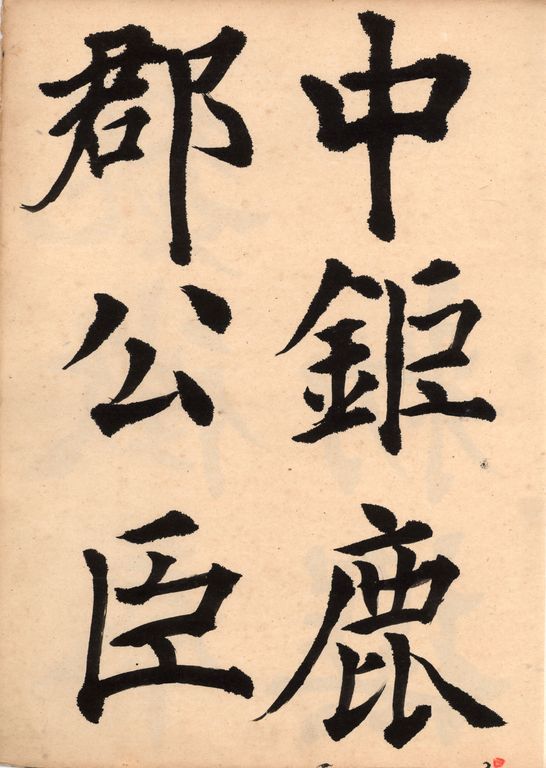 中鉅鹿
郡公臣